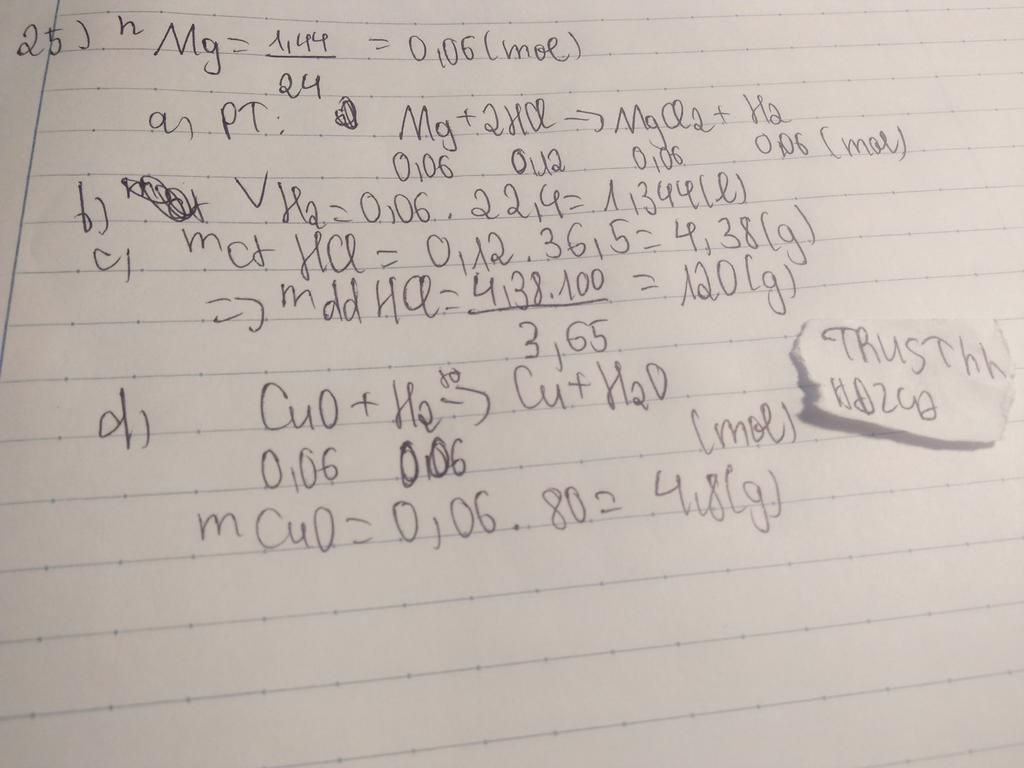 25) n Mg = 1,44 / 24 = 0,06 (mol)
a, PT: Mg + 2HCl → MgCl2 + H2
0,06 0,12 0,06 0,06 (mol)
b) V H2 = 0,06 . 22,4 = 1,344 (l)
c, m ct HCl = 0,12 . 36,5 = 4,38 (g)
=> m dd HCl = 4,38.100 / 3,65 = 120 (g)
d, CuO + H2 t° → Cu + H2O
0,06 0,06 (mol)
m CuO = 0,06 . 80 = 4,8 (g)
TRUSThh